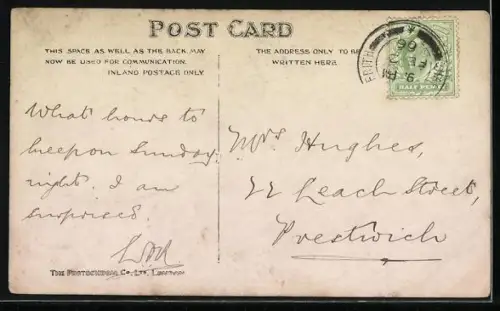 POST CARD
THIS SPACE AS WELL AS THE BACK MAY
NOW BE USED FOR COMMUNICATION.
INLAND POSTAGE ONLY
THE ADDRESS ONLY TO BE
WRITTEN HERE.
HALF PENNY
What hours to
keep on Sunday
night. I am
surprised.
Mrs Hughes,
22 Leach Street,
Prestwich
THE PHOTOCHROM CO., LTD.,